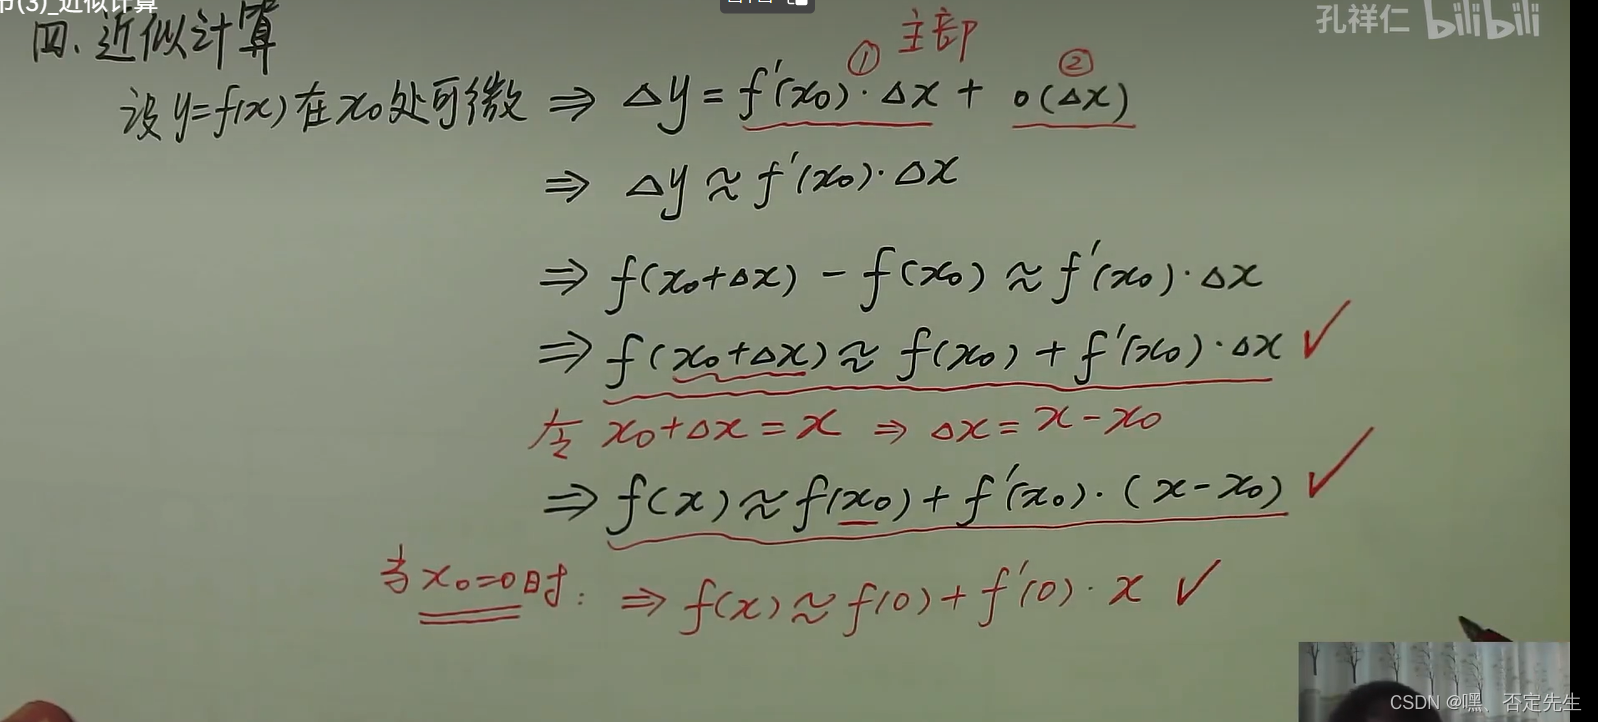 节(3)_近似计算
孔祥仁 bilibili
四、近似计算
① 主部 ②
设 y=f(x) 在 x₀ 处可微 ⇒ Δy = f'(x₀)·Δx + o(Δx)
⇒ Δy ≈ f'(x₀)·Δx
⇒ f(x₀+Δx) - f(x₀) ≈ f'(x₀)·Δx
⇒ f(x₀+Δx) ≈ f(x₀) + f'(x₀)·Δx ✓
令 x₀+Δx = x ⇒ Δx = x-x₀
⇒ f(x) ≈ f(x₀) + f'(x₀)·(x-x₀) ✓
当 x₀=0时: ⇒ f(x) ≈ f(0) + f'(0)·x ✓
CSDN @嘿、否定先生